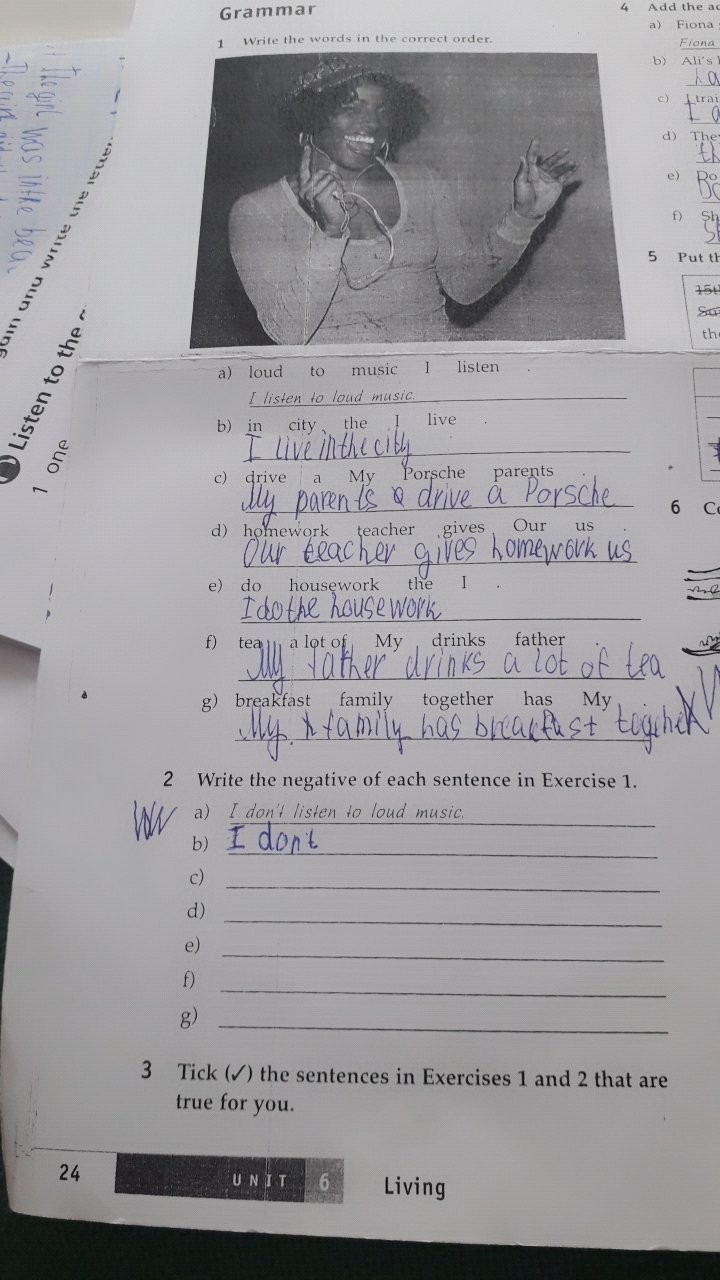 Grammar
1 Write the words in the correct order.
a) loud to music I listen .
I listen to loud music.
b) in city the I live .
I live in the city
c) drive a My Porsche parents .
My parents drive a Porsche
d) homework teacher gives Our us .
Our teacher gives homework us
e) do housework the I .
I do the housework
f) tea a lot of My drinks father .
My father drinks a lot of tea
g) breakfast family together has My .
My family has breakfast
2 Write the negative of each sentence in Exercise 1.
a) I don't listen to loud music.
b) I don't
c)
d)
e)
f)
g)
3 Tick (✓) the sentences in Exercises 1 and 2 that are
true for you.
24 UNIT 6 Living
4 Add the
a) Fiona
Fiona
b) Ali's
c)
d)
e)
f)
5 Put
6
Listen to the
1 one
the girl was in the